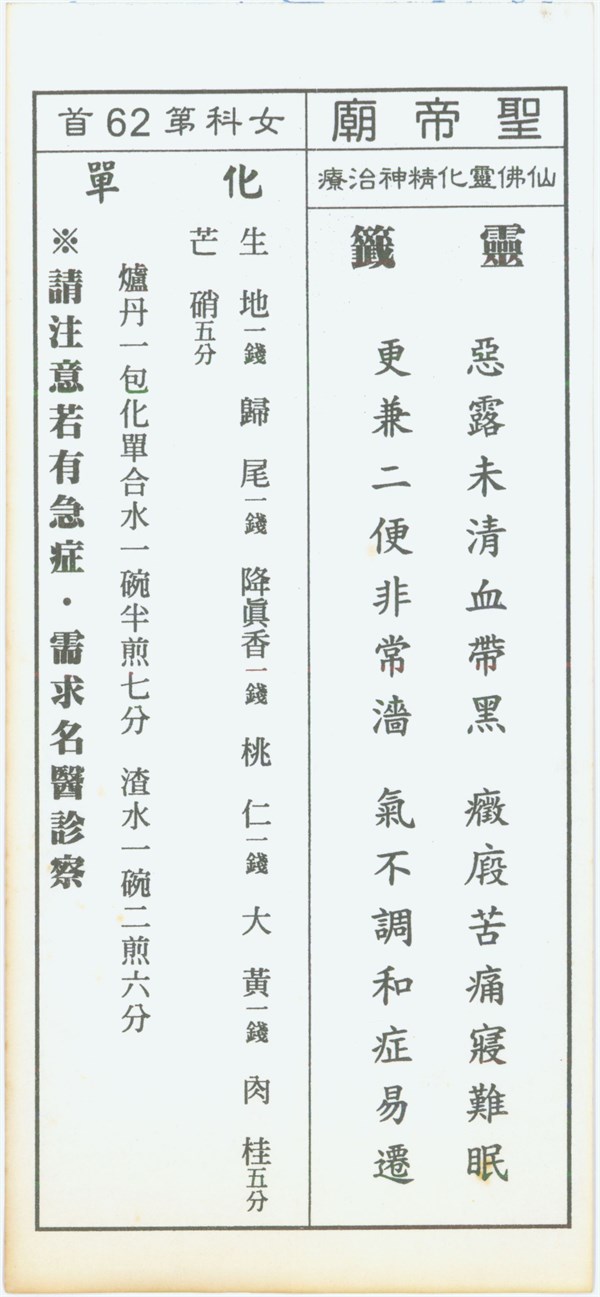 聖帝廟
仙佛靈化精神治療
靈籤
惡露未清血帶黑 癥瘕苦痛寢難眠
更兼二便非常濇 氣不調和症易遷
女科第62首
化單
生地一錢 歸尾一錢 降眞香一錢 桃仁一錢 大黃一錢 肉桂五分
芒硝五分
爐丹一包化單合水一碗半煎七分 渣水一碗二煎六分
※請注意若有急症·需求名醫診察